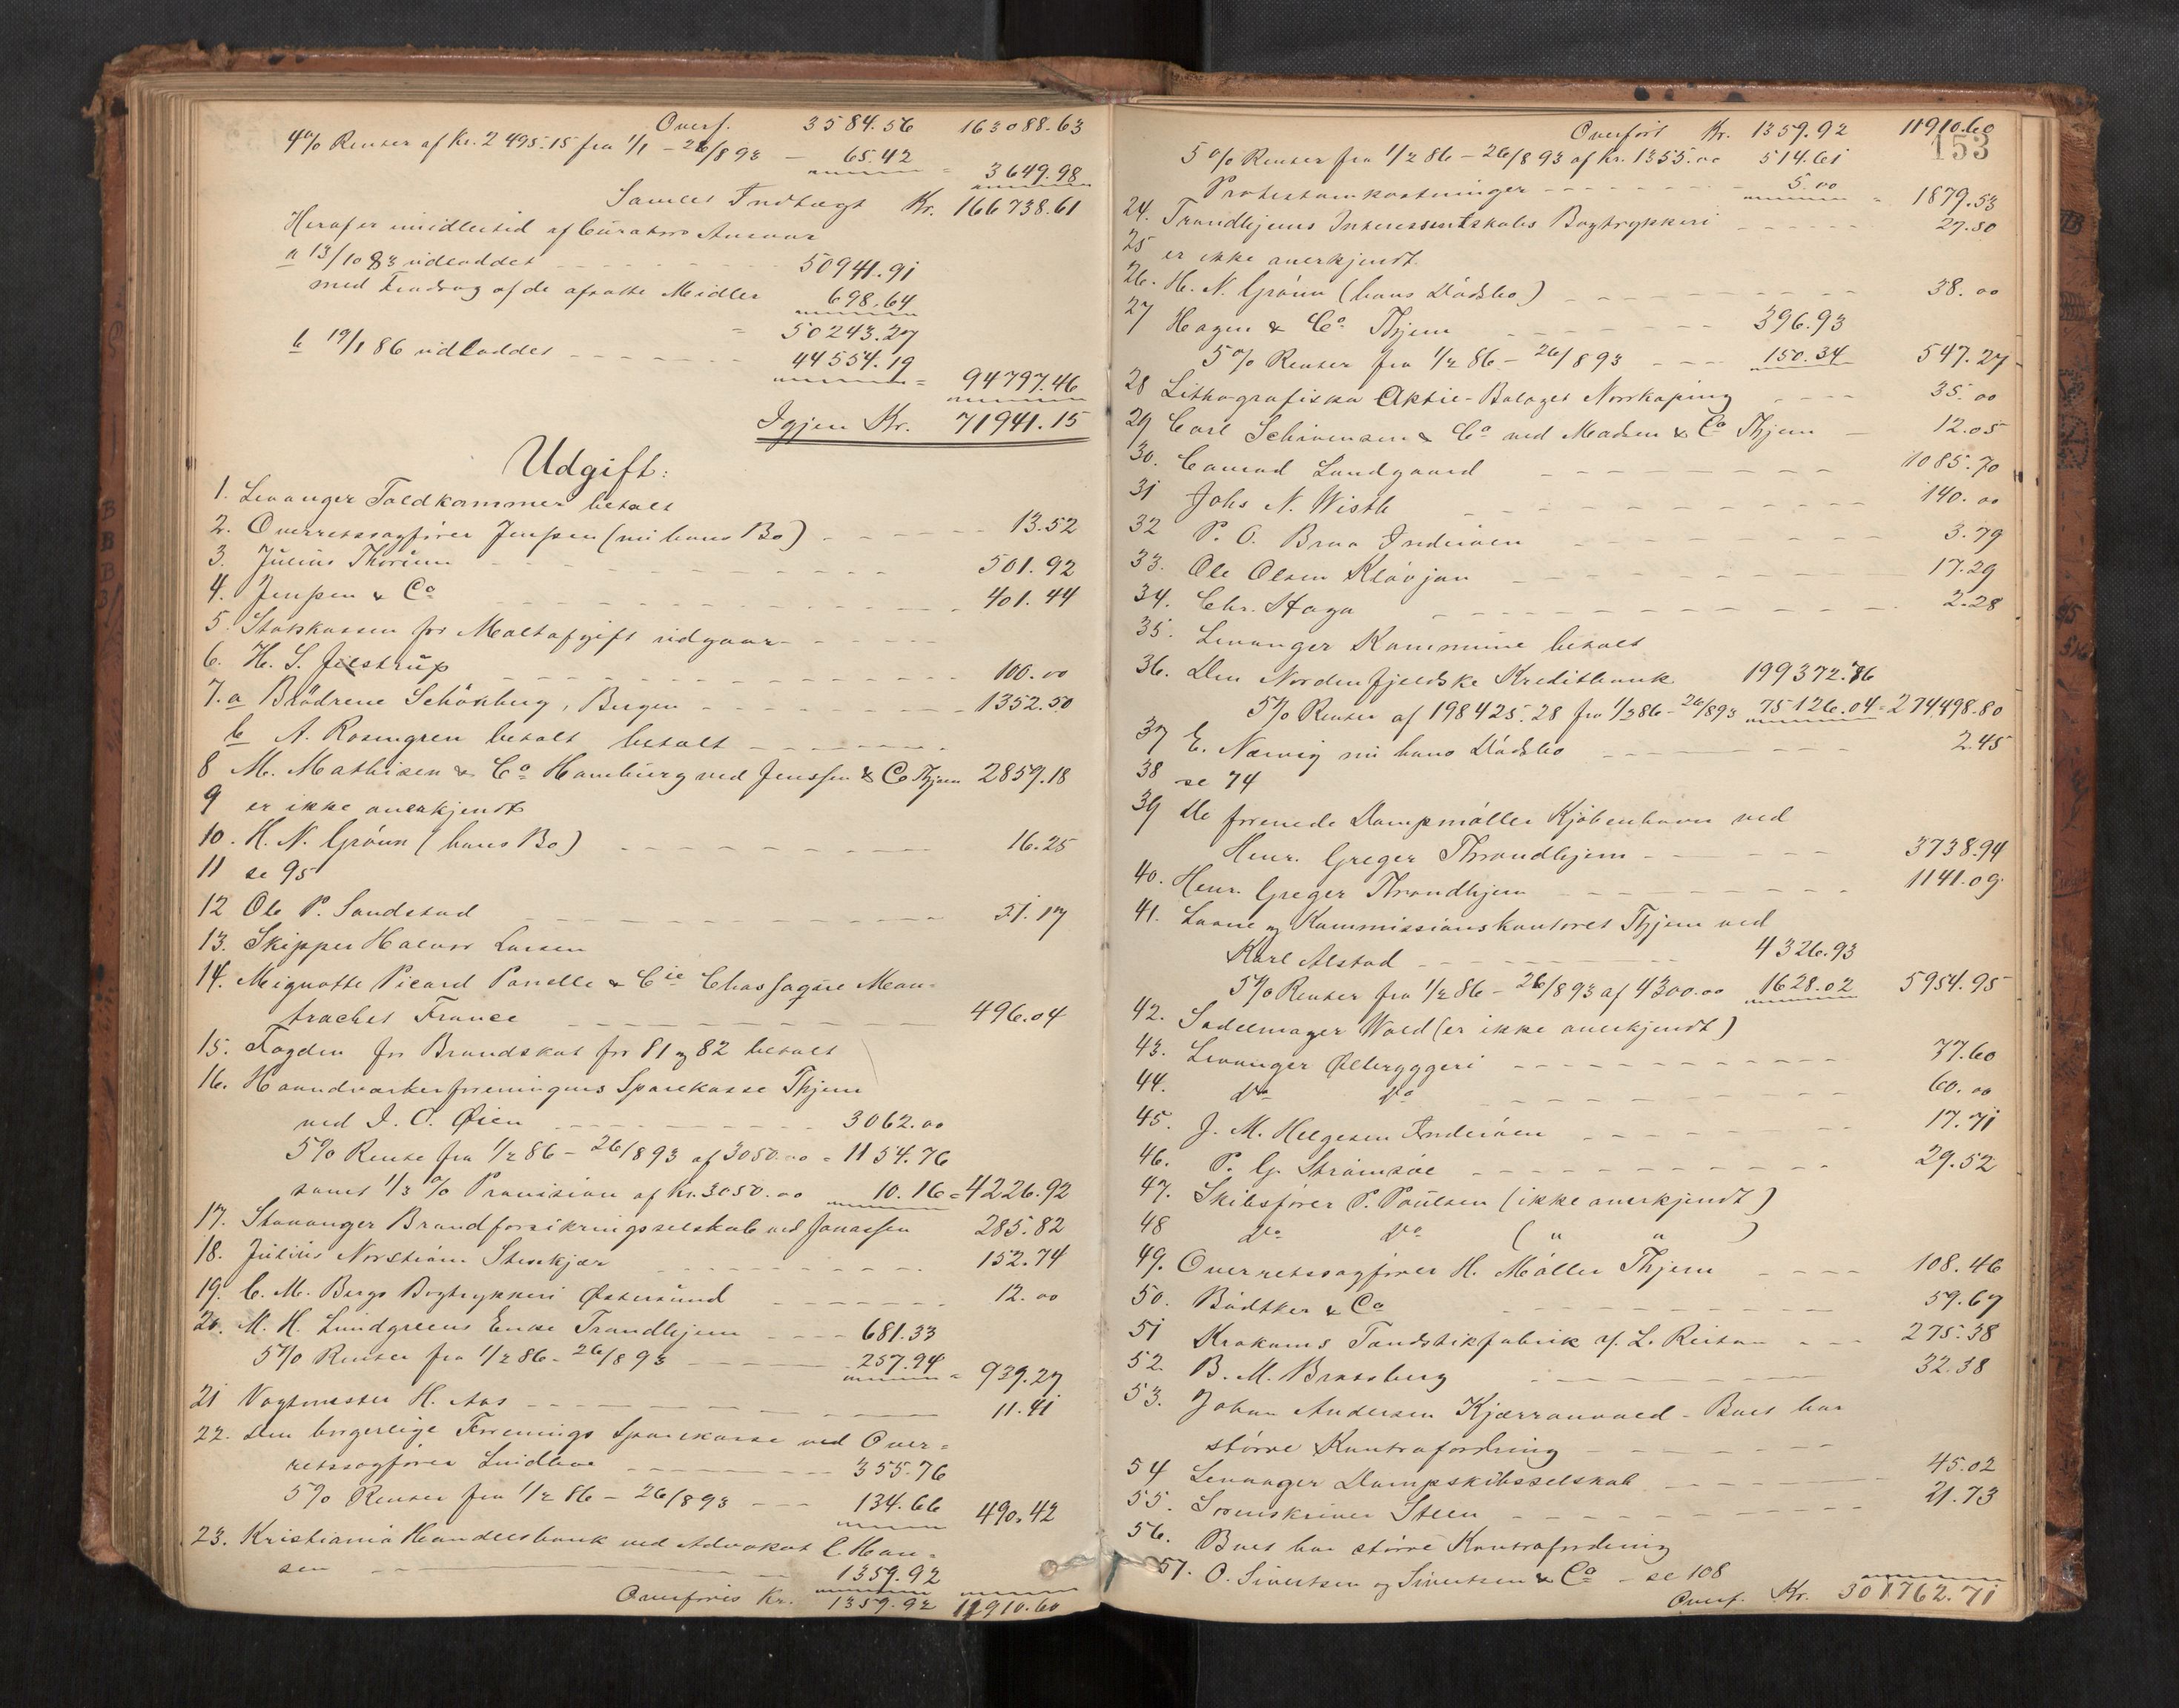 Overf. 3584.56 163088.63
4% Renter af Kr. 2495.15 fra 1/1 - 26/8 93 - 65.42 = 3649.98
Samlet Indtægt Kr. 166738.61
Heraf er imidlertid af Curators Ansvar
a 13/10 83 udloddet 50941.91
med Fradrag af de afsatte Midler 698.64
= 50243.27
b 19/1 86 udloddet 44554.19 = 94797.46
Igjen Kr. 71941.15
Udgift:
1. Levanger Toldkammer betalt
2. Overretssagfører Jenssen (nu hans Bo) 13.52
3. Julius Thorum 501.92
4. Jenssen & Co 401.44
5. Statskassen for Maltafgift udgaar
6. H. S. Jelstrup 100.00
7. a Brödrene Schönberg, Bergen 1352.50
b A. Rosengren betalt betalt
8 M. Mathisen & Co Hamburg ved Jenssen & Co Thjem 2859.18
9 er ikke anerkjendt
10. H. N. Grönn (hans Bo) 16.25
11 se 95
12 Ole P. Sandstad 31.17
13. Skipper Halvor Larsen
14. Mignotte Picard Panelle & Cie Chassagne Mon-
trachet France 496.04
15. Fogden for Brandskat for 81 og 82 betalt
16. Haandværkerforeningens Sparekasse Thjem
ved I. O. Øien 3062.00
5% Rente fra 1/2 86 - 26/8 93 af 3050.00 = 1154.76
samt 1/3 % Provision af Kr. 3050.00 10.16 = 4226.92
17. Stavanger Brandforsikringsselskab ved Jonassen 285.82
18. Julius Norström Stenkjær 152.74
19. C. M. Bergs Bogtrykkeri Østersund 12.00
20. M. H. Lundgreens Enke Trondhjem 681.33
5% Renter fra 1/2 86 - 26/8 93 257.94 = 939.27
21 Vagtmester H. Aas 11.41
22. Den borgerlige Forenings Sparekasse ved Over-
retssagfører Lindboe 355.76
5% Renter fra 1/2 86 - 26/8 93 134.66 490.42
23. Kristiania Handelsbank ved Advokat C. Han-
sen 1359.92
Overføres Kr. 1359.92 11910.60
153
Overført Kr. 1359.92 11910.60
5% Renter fra 1/2 86 - 26/8 93 af Kr. 1355.00 514.61
Protestomkostninger 5.00 = 1879.53
24. Trondhjems Interessentskabs Bogtrykkeri 27.80
25 er ikke anerkjendt.
26. H. N. Grönn (hans Dödsbo) 38.00
27 Hagen & Co Thjem 396.93
5% Renter fra 1/2 86 - 26/8 93 150.34 547.27
28 Lithografiska Aktie-Bolaget Norrkøping 35.00
29 Carl Schivensen & Co ved Madsen & Co Thjem 12.05
30. Conrad Lundgaard 1085.70
31 Johs N. Wisth 140.00
32 P. O. Braa Inderøen 3.79
33. Ole Olsen Kløvjan 17.29
34. Chr. Haga 2.28
35. Levanger Kommune betalt
36. Den Nordenfjeldske Kreditbank 199372.76
5% Renter af 198425.28 fra 1/2 86 - 26/8 93 75126.04 = 274498.80
37 E. Næwig nu hans Dødsbo 2.45
38 se 74
39 De forenede Dampmøller Kjøbenhavn ved
Henr. Greger Throndhjem 3738.94
40. Henr. Greger Throndhjem 1141.09
41. Laane og Kommissionskontoret Thjem ved
Karl Alstad 4326.93
5% Renter fra 1/2 86 - 26/8 93 af 4300.00 1628.02 5954.95
42. Sadelmager Wold (er ikke anerkjendt)
43. Levanger Ølbryggeri 37.60
44. do do 60.00
45. J. M. Helgesen Inderøen 17.71
46. P. G. Strømsøe 29.52
47. Skibsfører P. Poulsen (ikke anerkjendt)
48 do do ( " " )
49. Overretssagfører H. Møller Thjem 108.46
50. Bödtker & Co 59.67
51 Krokoms Tandstikfabrik v/ L. Reitan 275.38
52. B. M. Bratsberg 32.38
53. Johan Andersen Kjærranvold - Boet har
større Kontrafordring
54 Levanger Dampskibsselskab 45.02
55. Sorenskriver Steen 21.73
56. Boet har større Kontrafordring
57. O. Sivertsen og Sivertsen & Co - se 108
Overf. Kr. 301762.71